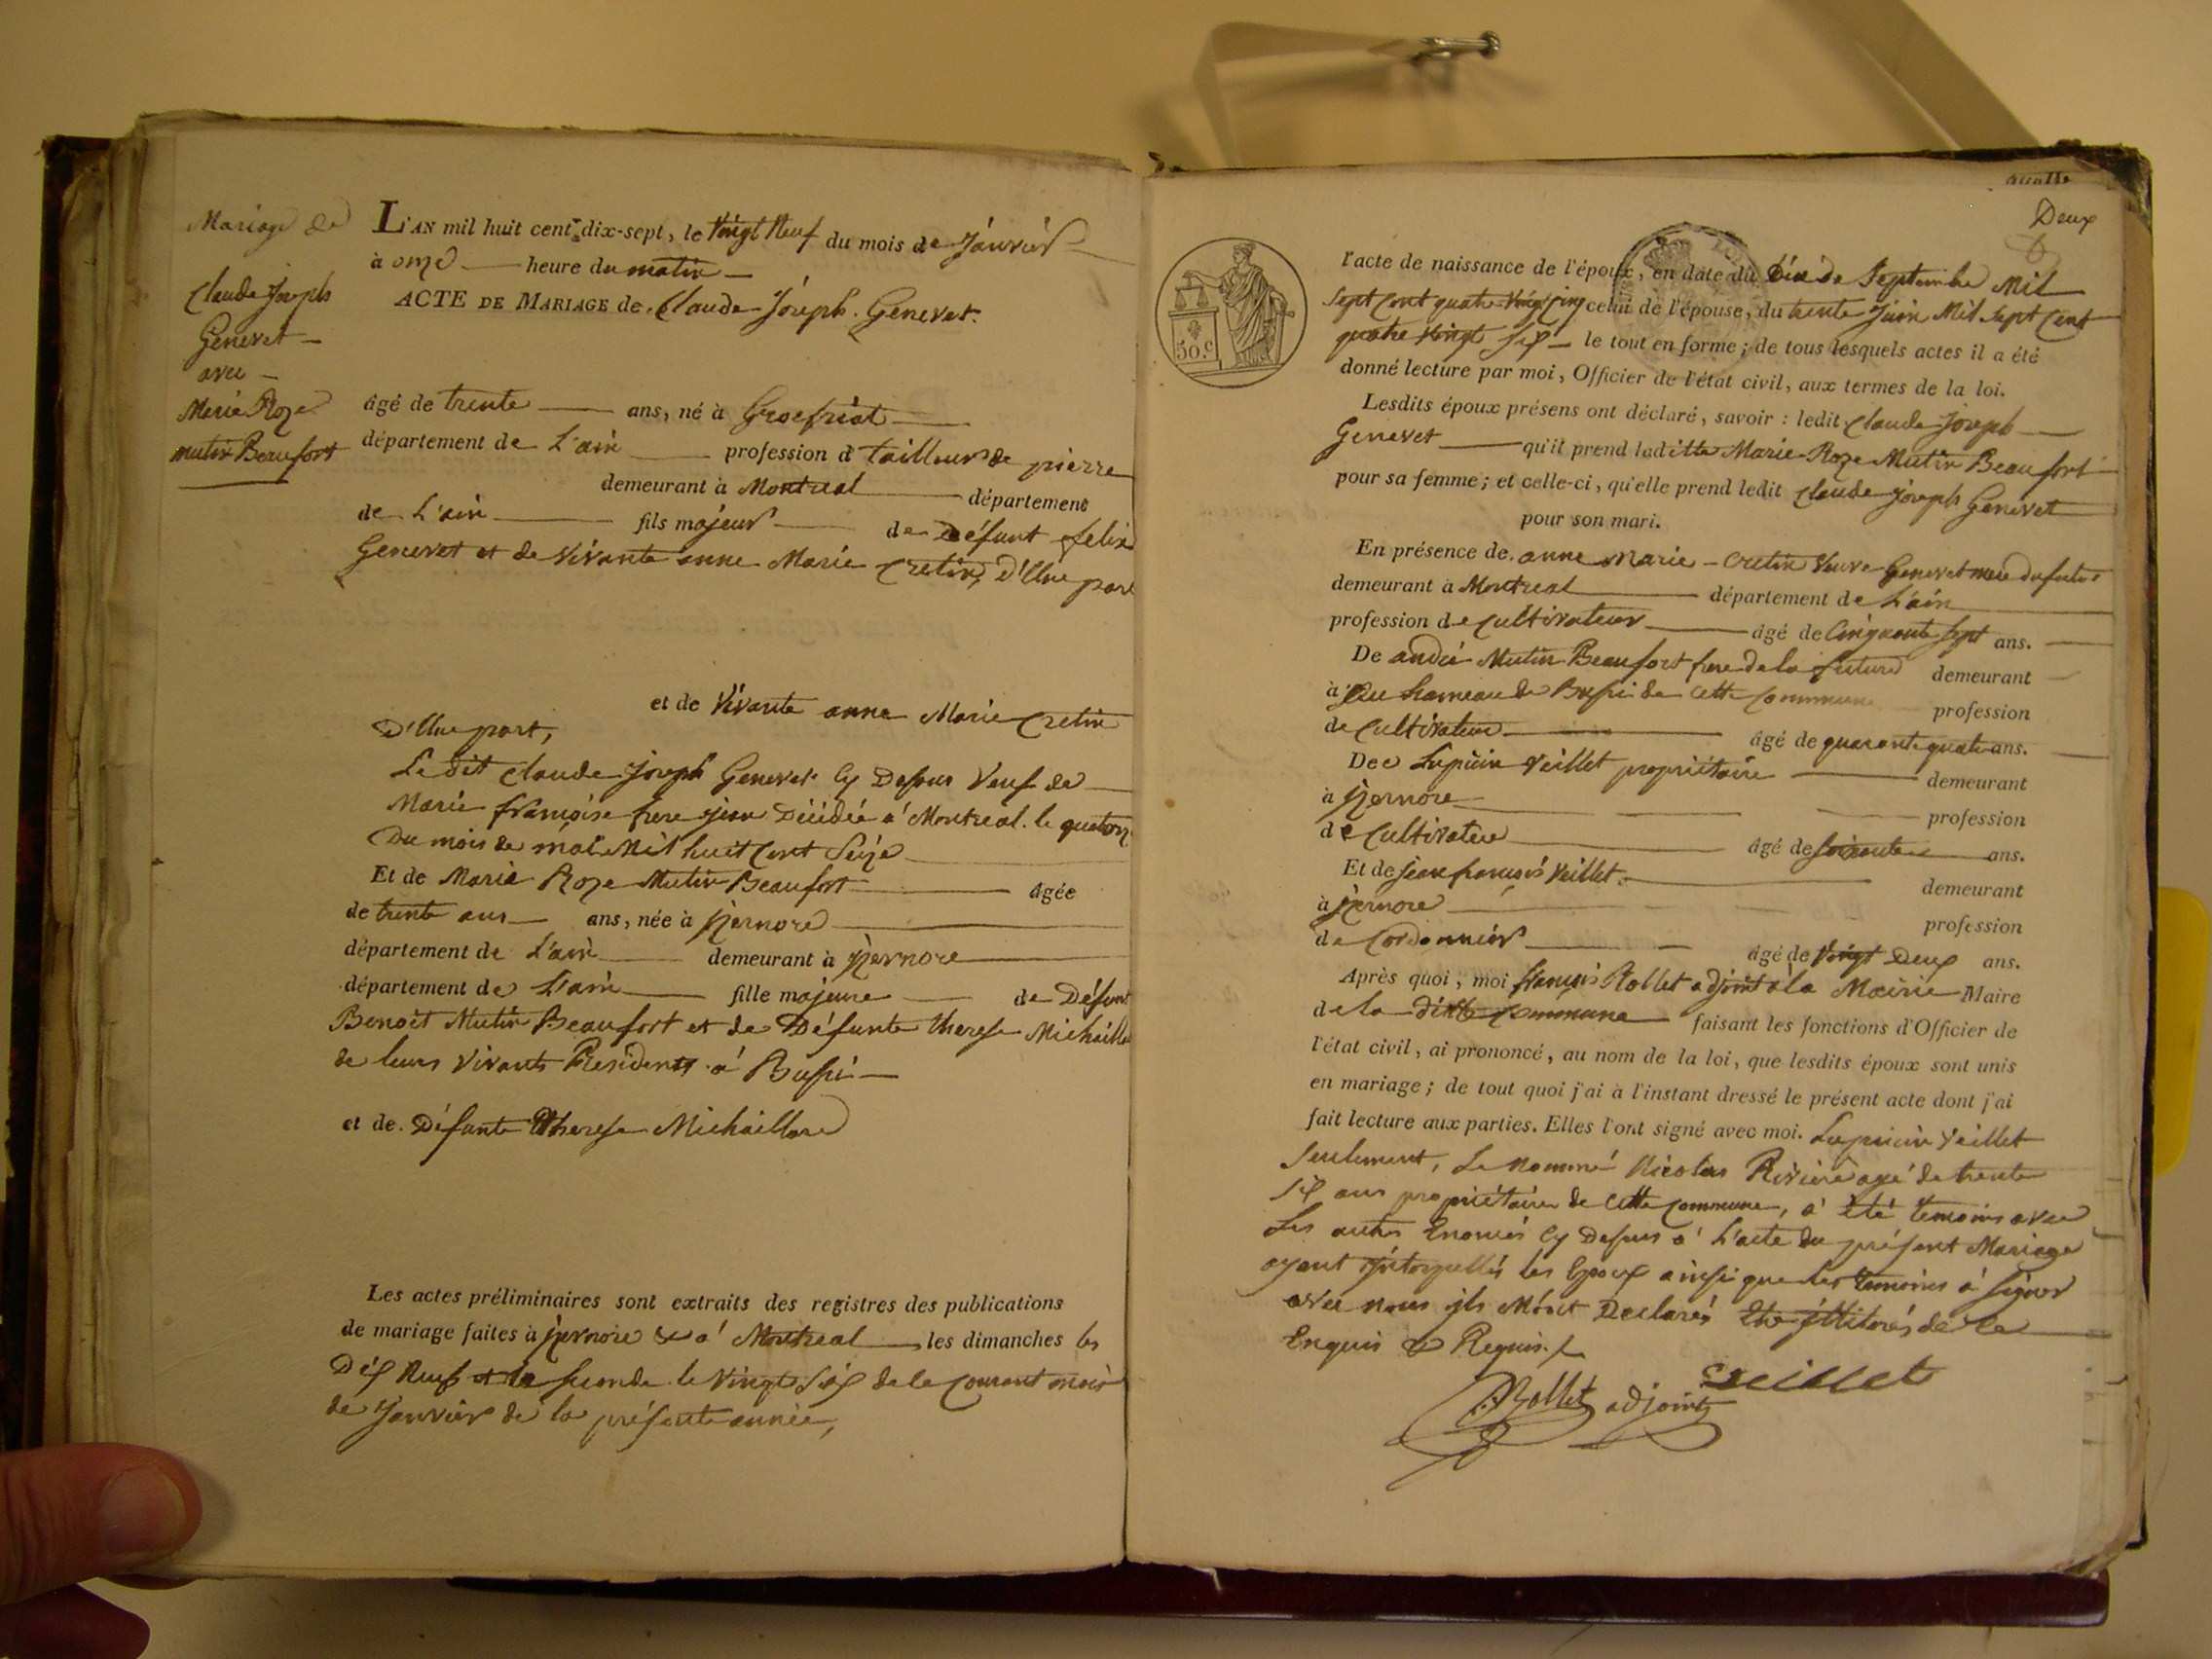 Mariage de
Claude Joseph
Genevet
avec
Marie Roze
mutin Beaufort
L'AN mil huit cent dix-sept, le Vingt Neuf du mois de Janvier
à onze heure du matin
ACTE DE MARIAGE de Claude Joseph Genevet.
âgé de trente ans, né à
département de L'ain profession d tailleur de pierre
demeurant à Montreal département
de L'ain fils majeur de Défunt felix
Genevet et de Vivante anne Marie Cretin, d'Une part
et de Vivante anne Marie Cretin
D'Une part,
Le dit Claude Joseph Genevet Cy Dessus Veuf de
Marie françoise frere jean Décidée à Montreal le quatorz
Du mois de mai Mil huit Cent Seize
Et de Marie Roze Mutin Beaufort âgée
de trente ans ans, née à jzernore
département de L'ain demeurant à jzernore
département de L'ain fille majeure de Défunt
Benoit Mutin Beaufort et de Défunte therese Michaillar
de leurs Vivants Residents à Bussi
et de Défunte therese Michaillard
Les actes préliminaires sont extraits des registres des publications
de mariage faites à jzernore & à Montreal les dimanches les
Dix Neuf et la seconde le Vingt Six de le Courant mois
de Janvier de la présente année,
Deux
l'acte de naissance de l'époux, en date du Dix de Septembre Mil
Sept Cent quatre Vingt Cinq celui de l'épouse, du trente Juin Mil Sept Cent
quatre Vingt Six le tout en forme; de tous lesquels actes il a été
donné lecture par moi, Officier de l'état civil, aux termes de la loi.
Lesdits époux présens ont déclaré, savoir : ledit Claude Joseph
Genevet qu'il prend laditte Marie Roze Mutin Beaufort
pour sa femme; et celle-ci, qu'elle prend ledit Claude Joseph Genevet
pour son mari.
En présence de anne Marie Cretin Veuve Genevet mere du futur
demeurant à Montreal département de L'ain
profession de Cultivateur âgé de Cinquante sept ans.
De andré Mutin Beaufort frere de la future demeurant
à au hameau de Bussi de cette Commune profession
de Cultivateur âgé de quarante quatre ans.
De Lupicin Veillet propriétaire demeurant
à jzernore profession
de Cultivateur âgé de soixante ans.
Et de jean françois Veillet demeurant
à jzernore profession
de Cordonnier âgé de Vingt Deux ans.
Après quoi, moi françois Rollet adjoint à la Mairie Maire
de la ditte Commune faisant les fonctions d'Officier de
l'état civil, ai prononcé, au nom de la loi, que lesdits époux sont unis
en mariage; de tout quoi j'ai à l'instant dressé le présent acte dont j'ai
fait lecture aux parties. Elles l'ont signé avec moi. Lupicin Veillet
Seulement, Le nommé Nicolas Riviere agé de trente
Six ans propriétaire de Cette Commune, à été temoins avec
Les autres Enoncés Cy Dessus à L'acte du présent Mariage
ayant les Epoux ainsi que les temoins à signer
avec nous jls M'ont Declarés Etre jllitérés de ce
Enquis & Requis.
Rollet adjoint
Veillet
50.c